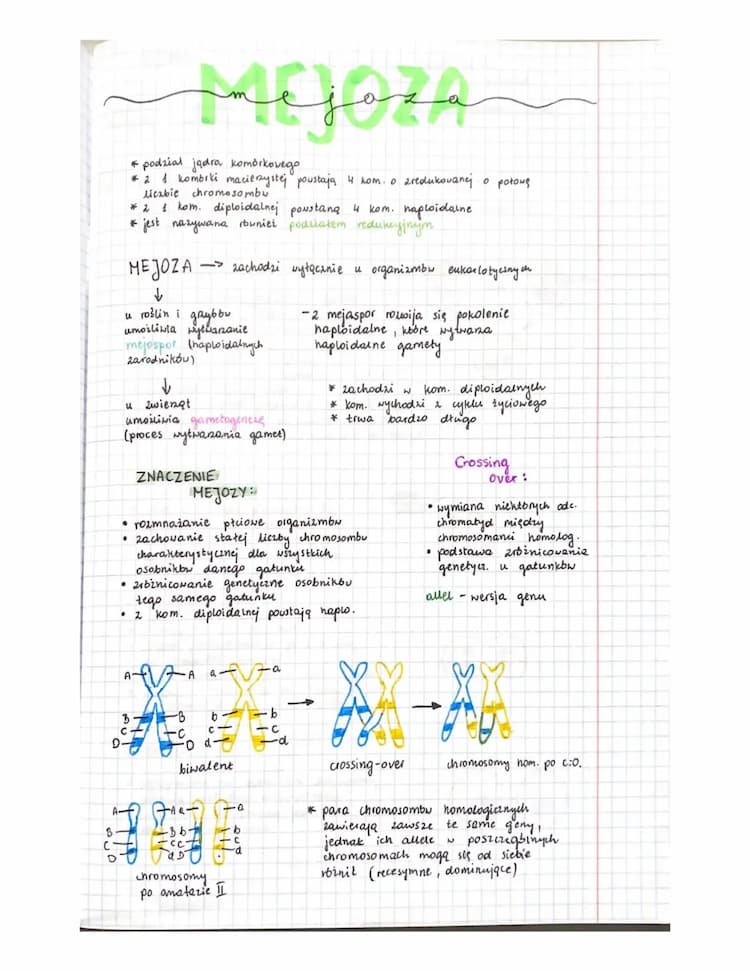 MEJOZA
mejoza
* podział jądra komórkowego
* z 1 komórki macierzystej powstają 4 kom. o zredukowanej o połowę
liczbie chromosomów
* z 1 kom. diploidalnej powstaną 4 kom. haploidalne
* jest nazywana również podziałem redukcyjnym
MEJOZA → zachodzi wyłącznie u organizmów eukariotycznych
↓
u roślin i grzybów
umożliwia wytwarzanie
mejospor (haploidalnych
zarodników)
- z mejospor rozwija się pokolenie
haploidalne, które wytwarza
haploidalne gamety
↓
u zwierząt
umożliwia gametogenezę
(proces wytwarzania gamet)
* zachodzi w kom. diploidalnych
* kom. wychodzi z cyklu życiowego
* trwa bardzo długo
ZNACZENIE
MEJOZY:
• rozmnażanie płciowe organizmów
• zachowanie stałej liczby chromosomów
charakterystycznej dla wszystkich
osobników danego gatunku
• zróżnicowanie genetyczne osobników
tego samego gatunku
• z kom. diploidalnej powstają haplo.
Crossing
over:
• wymiana niektórych odc.
chromatyd między
chromosomami homolog.
• podstawa zróżnicowania
genetycz. u gatunków
allel - wersja genu
A A a a
B B b b
C C c c
D D d d
biwalent
crossing-over
chromosomy hom. po C.O.
A A a a
B B b b
C C c c
D d D d
chromosomy
po anafazie II
* para chromosomów homologicznych
zawierają zawsze te same geny,
jednak ich allele w poszczególnych
chromosomach mogą się od siebie
różnić (recesywne, dominujące)